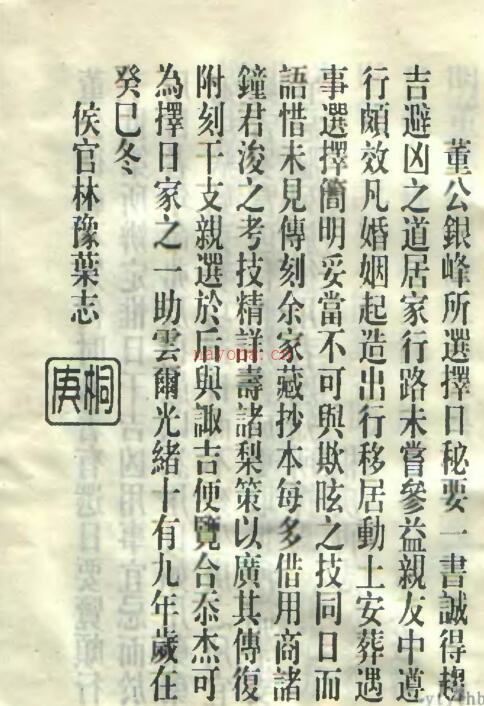 董公銀峰所選擇日秘要一書誠得趨
吉避凶之道居家行路未嘗參益親友中遵
行頗效凡婚姻起造出行移居動土安葬遇
事選擇簡明妥當不可與欺眩之技同日而
語惜未見傳刻余家藏抄本每多借用商諸
鐘君浚之考技精詳壽諸梨策以廣其傳復
附刻干支親選於后與諏吉便覽合忝杰可
為擇日家之一助雲爾光緒十有九年歲在
癸巳冬
侯官林豫葉志
桐庚
nayona.cn